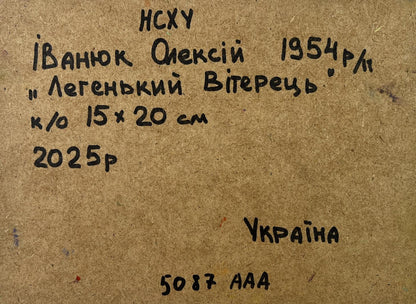 НСХУ
Іванюк Олексій 1954р/н
„Легенький Вітерець"
к/о 15×20 см
2025р
Україна
5087 ААА